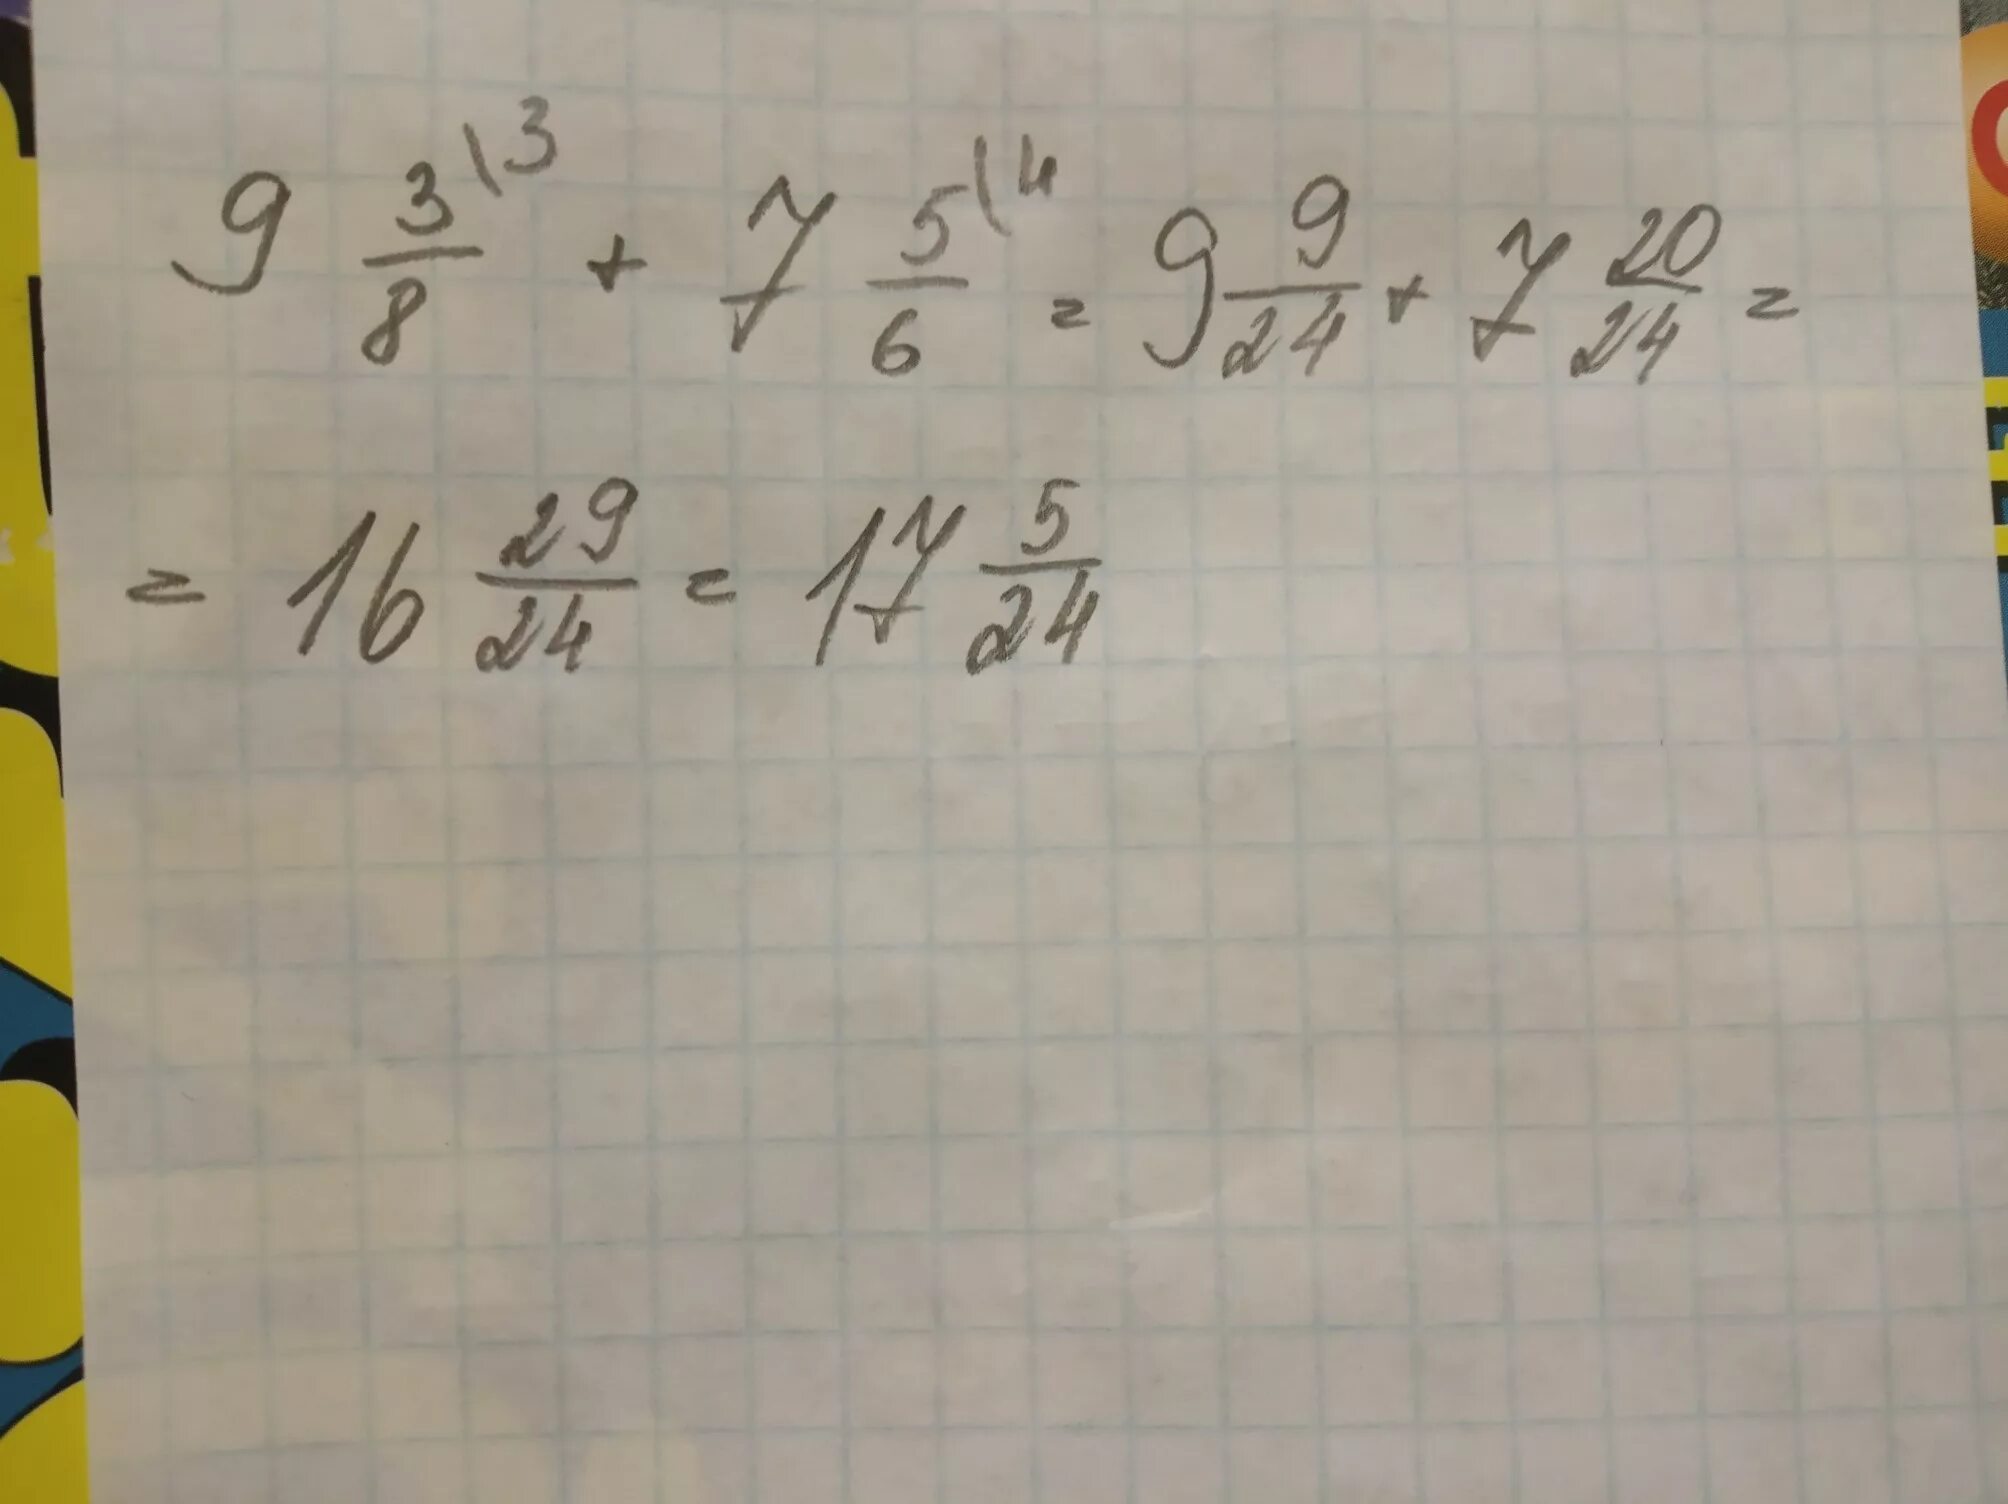 9 3/8 \3 + 7 5/6 \4 = 9 9/24 + 7 20/24 =
= 16 29/24 = 17 5/24